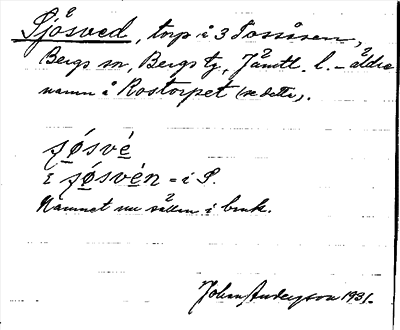 Sjåsved, torp i 3 Tossåsen,
Bergs sn, Bergs tg, Jämtl. l. – äldre
namn å Rostorpet (se detta).
i = i S.
Namnet nu sällan i bruk.
Johan Anderson 1931.